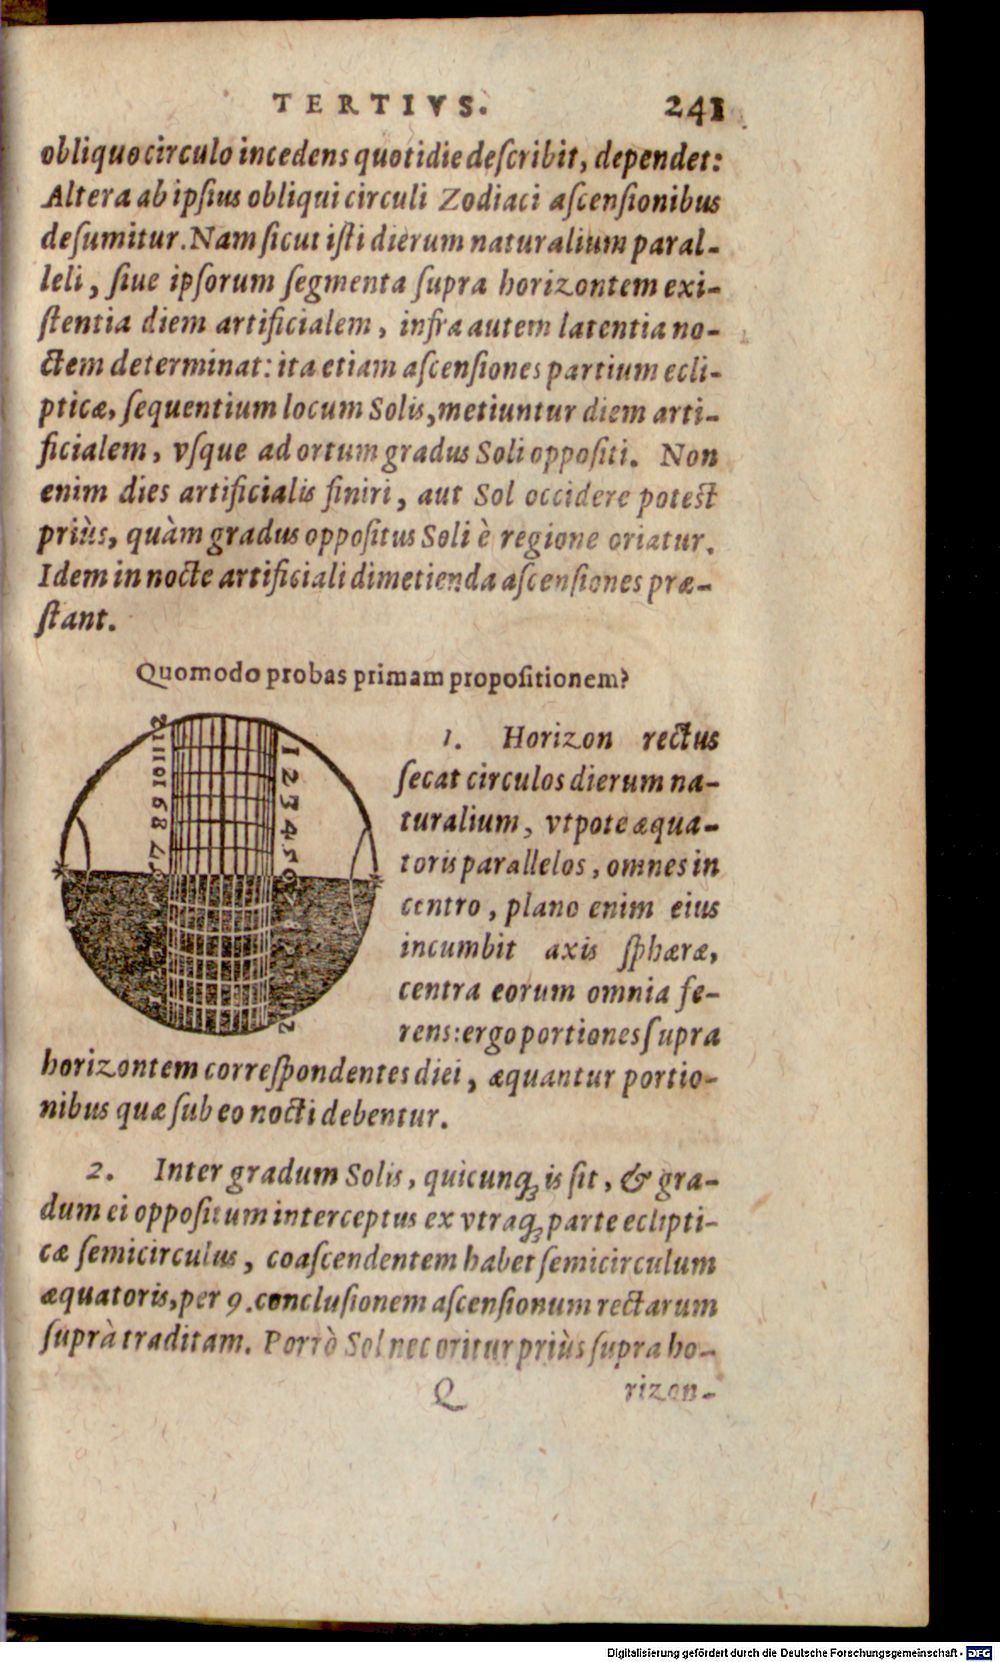 TERTIVS. 241
obliquo circulo incedens quotidie deſcribit, dependet:
Altera ab ipſius obliqui circuli Zodiaci aſcenſionibus
deſumitur. Nam ſicut iſti dierum naturalium paral-
leli, ſiue ipſorum ſegmenta ſupra horizontem exi-
ſtentia diem artificialem, infra autem latentia no-
ctem determinat: ita etiam aſcenſiones partium ecli-
pticæ, ſequentium locum Solis, metiuntur diem arti-
ficialem, vſque ad ortum gradus Soli oppoſiti. Non
enim dies artificialis finiri, aut Sol occidere poteſt
priùs, quàm gradus oppoſitus Soli è regione oriatur.
Idem in nocte artificiali dimetienda aſcenſiones præ-
ſtant.
Quomodo probas primam propoſitionem?
12 11 10 9 8 7 6
1 2 3 4 5 6 7
1. Horizon rectus
ſecat circulos dierum na-
turalium, vtpote æqua-
toris parallelos, omnes in
centro, plano enim eius
incumbit axis ſphæræ,
centra eorum omnia fe-
rens: ergo portiones ſupra
horizontem correſpondentes diei, æquantur portio-
nibus quæ ſub eo nocti debentur.
2. Inter gradum Solis, quicunq; is ſit, & gra-
dum ei oppoſitum interceptus ex vtraq; parte eclipti-
cæ ſemicirculus, coaſcendentem habet ſemicirculum
æquatoris, per 9. concluſionem aſcenſionum rectarum
ſuprà traditam. Porrò Sol nec oritur priùs ſupra ho-
Q rizon-
Digitalisierung gefördert durch die Deutsche Forschungsgemeinschaft - DFG